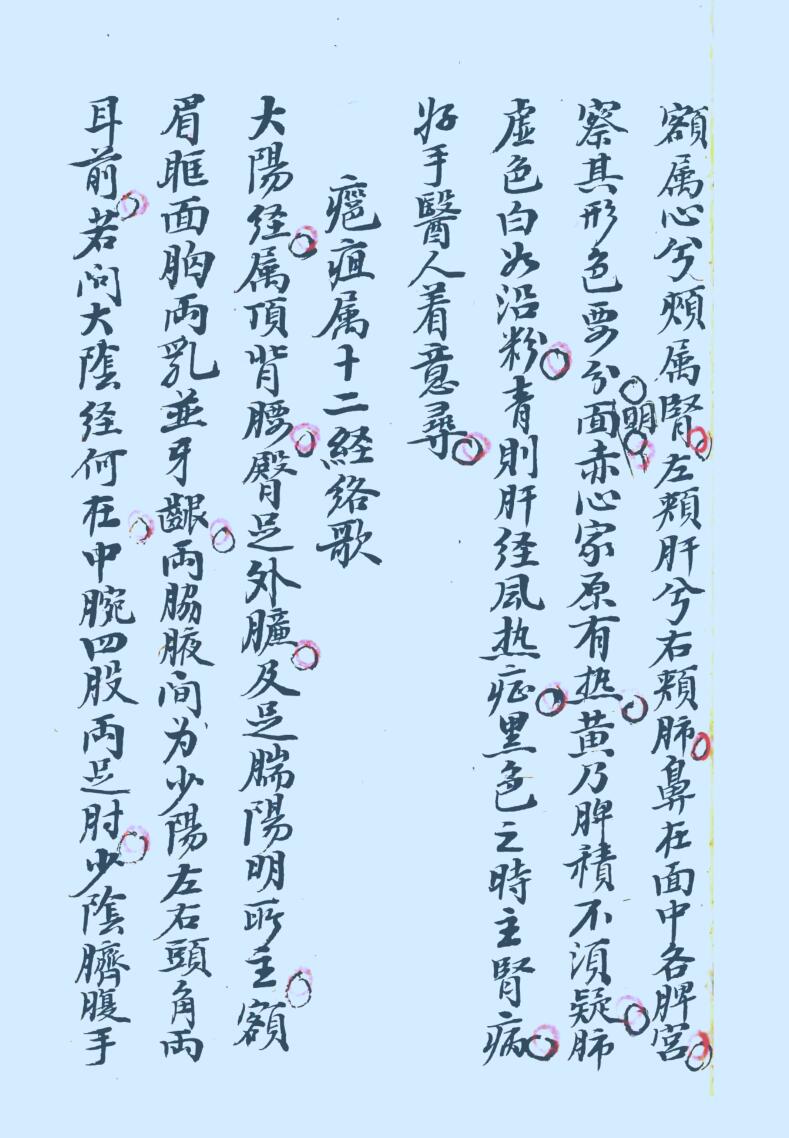 額属心兮頦属腎左頬肝兮右頬肺鼻在面中各脾宮
察其形色要分明面赤心家原有热黄乃脾積不須疑肺
虚色白如沿粉青則肝経風热症黒色之時主腎病
好手醫人着意尋
瘡疽属十二経絡歌
大陽経属頂背腰臀足外臁及足腨陽明所主額
眉眶面胸両乳並牙齦両脇腋间为少陽左右頭角両
耳前若问大陰経何在中腕四股両足肘少陰臍腹手